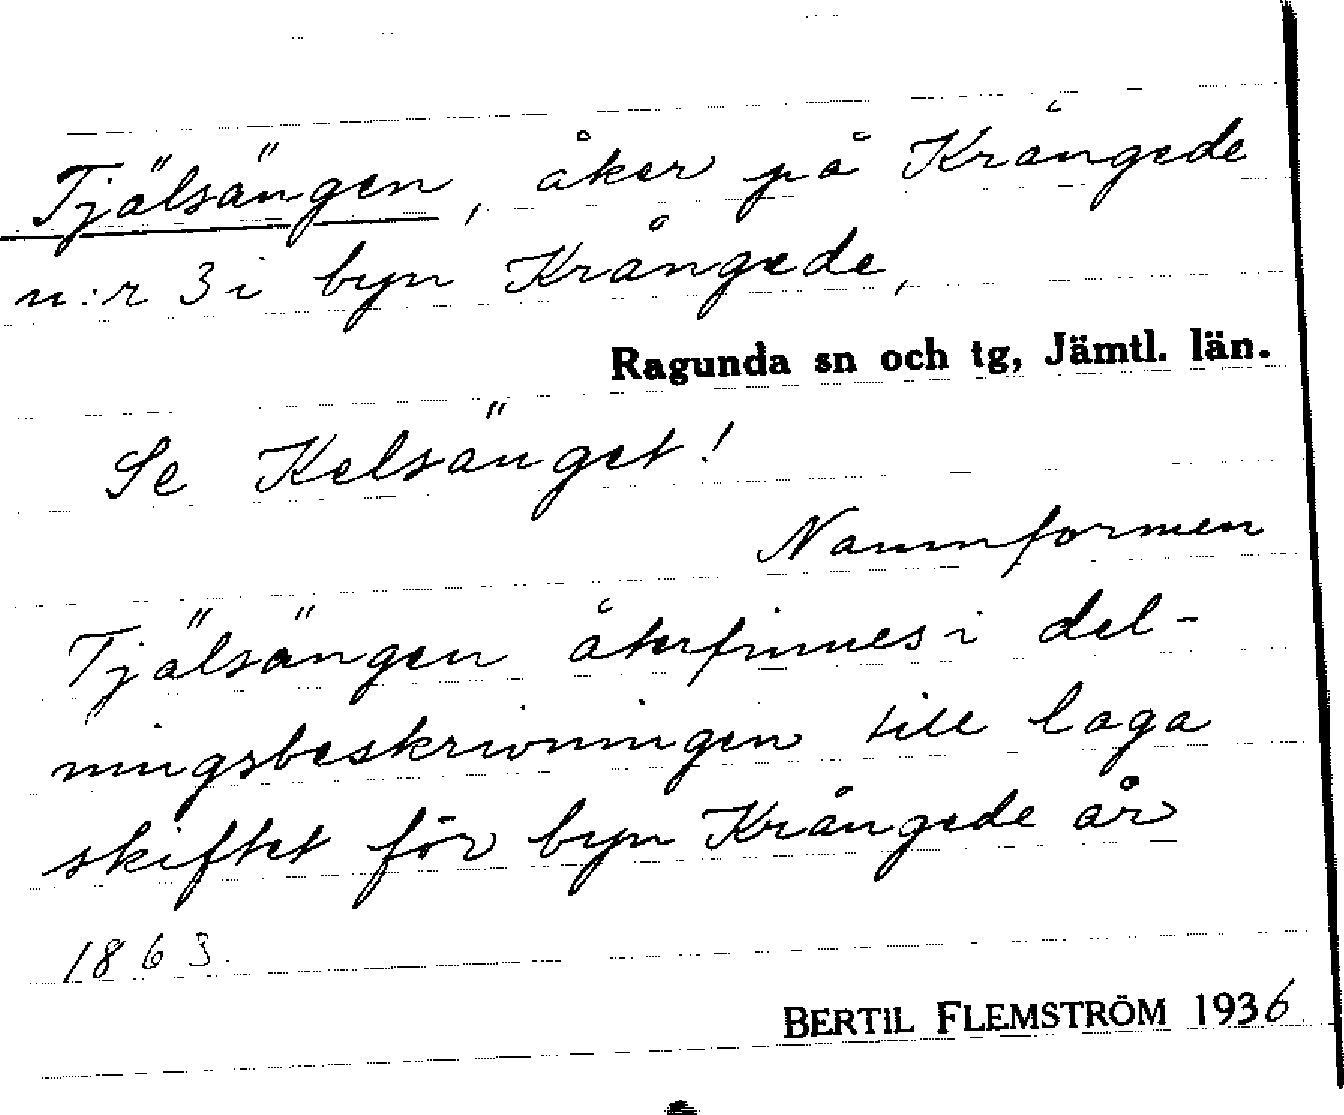 Tjälsängen, åker på Krångede
n:r 3 i byn Krångede,
Ragunda sn och tg, Jämtl. län.
Se Kelsänget!
Namnformen
Tjälsängen återfinnes i del-
ningsbeskrivningen till laga
skiftet för byn Krångede år
1863.
BERTIL FLEMSTRÖM 1936